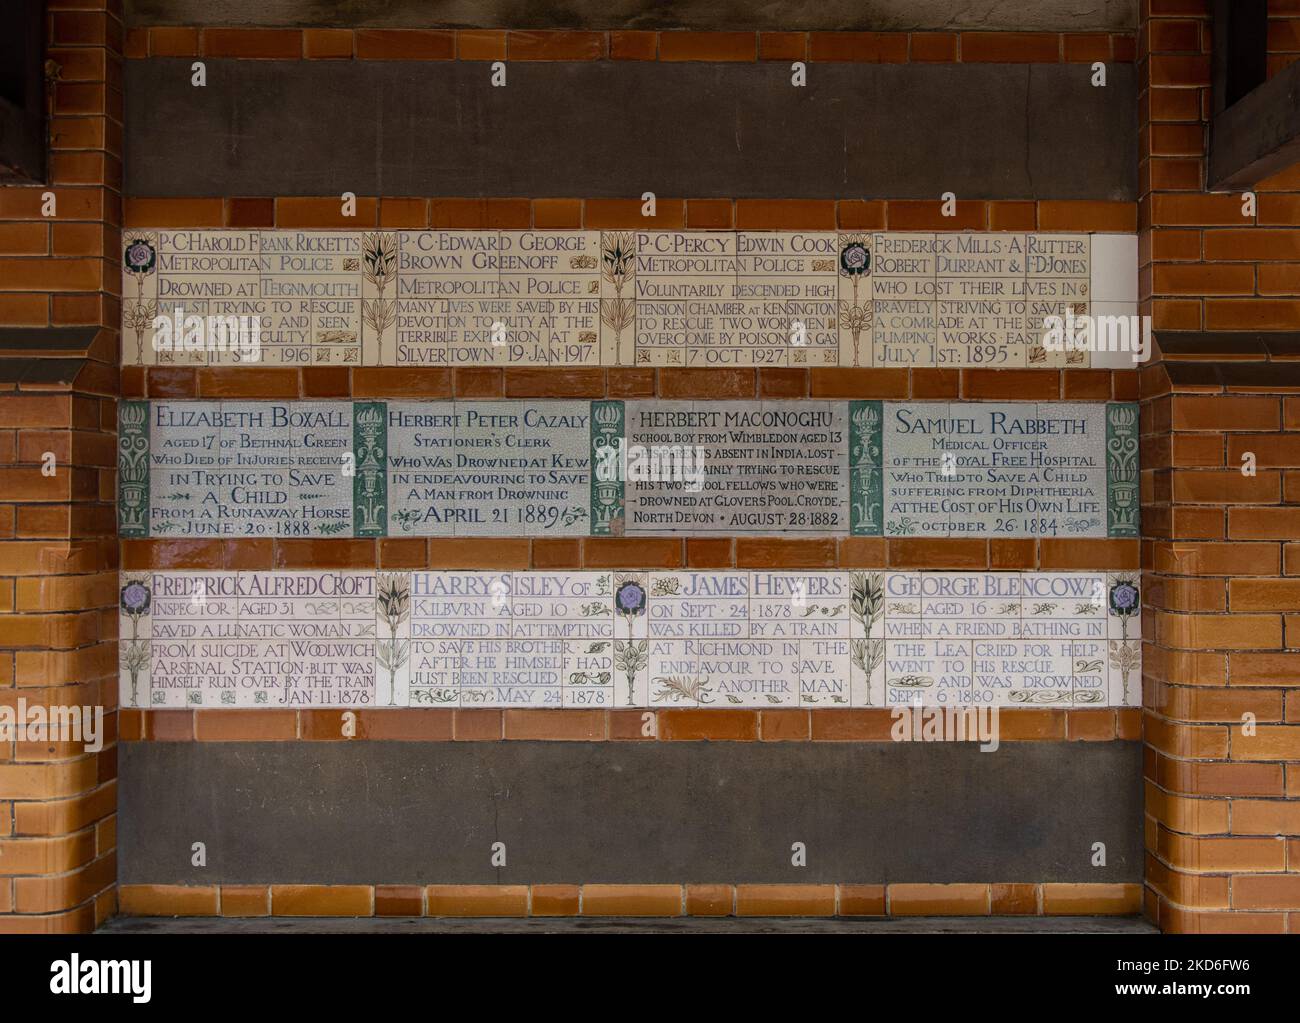 P·C·HAROLD FRANK RICKETTS
METROPOLITAN POLICE
DROWNED AT TEIGNMOUTH
WHILST TRYING TO RESCUE
A BOY BATHING AND SEEN
TO BE IN DIFFICULTY
11 SEPT 1916
P·C·EDWARD GEORGE
BROWN GREENOFF
METROPOLITAN POLICE
MANY LIVES WERE SAVED BY HIS
DEVOTION TO DUTY AT THE
TERRIBLE EXPLOSION AT
SILVERTOWN · 19·JAN·1917·
P·C·PERCY EDWIN COOK
METROPOLITAN POLICE
VOLUNTARILY DESCENDED HIGH
TENSION CHAMBER AT KENSINGTON
TO RESCUE TWO WORKMEN
OVERCOME BY POISONOUS GAS
7 OCT 1927·
FREDERICK MILLS · A·RUTTER
ROBERT DURRANT & F·D·JONES
WHO LOST THEIR LIVES IN
BRAVELY STRIVING TO SAVE
A COMRADE AT THE SEWAGE
PUMPING WORKS · EAST HAM
JULY 1ST: 1895 ·
ELIZABETH BOXALL
AGED 17 OF BETHNAL GREEN
WHO DIED OF INJURIES RECEIVED
IN TRYING TO SAVE
A CHILD
FROM A RUNAWAY HORSE
JUNE · 20 · 1888 ·
HERBERT PETER CAZALY
STATIONER'S CLERK
WHO WAS DROWNED AT KEW
IN ENDEAVOURING TO SAVE
A MAN FROM DROWNING
· APRIL 21 1889 ·
HERBERT MACONOGHU
SCHOOL BOY FROM WIMBLEDON AGED 13
HIS PARENTS ABSENT IN INDIA, LOST
HIS LIFE IN VAINLY TRYING TO RESCUE
HIS TWO SCHOOL FELLOWS WHO WERE
DROWNED AT GLOVERS POOL, CROYDE,
NORTH DEVON · AUGUST · 28 · 1882 ·
SAMUEL RABBETH
MEDICAL OFFICER
OF THE ROYAL FREE HOSPITAL
WHO TRIED TO SAVE A CHILD
SUFFERING FROM DIPHTHERIA
AT THE COST OF HIS OWN LIFE
OCTOBER 26 · 1884 ·
FREDERICK ALFRED CROFT
INSPECTOR · AGED 31
SAVED A LUNATIC WOMAN
FROM SUICIDE AT WOOLWICH
ARSENAL STATION · BUT WAS
HIMSELF RUN OVER BY THE TRAIN
JAN · 11 · 1878 ·
HARRY SISLEY OF
KILBURN · AGED 10
DROWNED IN ATTEMPTING
TO SAVE HIS BROTHER
AFTER HE HIMSELF HAD
JUST BEEN RESCUED
MAY 24 1878
JAMES HEWERS
ON SEPT · 24 · 1878
WAS KILLED BY A TRAIN
AT RICHMOND IN THE
ENDEAVOUR TO SAVE
ANOTHER MAN
GEORGE BLENCOWE
AGED 16
WHEN A FRIEND BATHING IN
THE LEA CRIED FOR HELP
WENT TO HIS RESCUE
AND WAS DROWNED
SEPT · 6 · 1880 ·
alamy
Image ID: 2KD6FW6
www.alamy.com